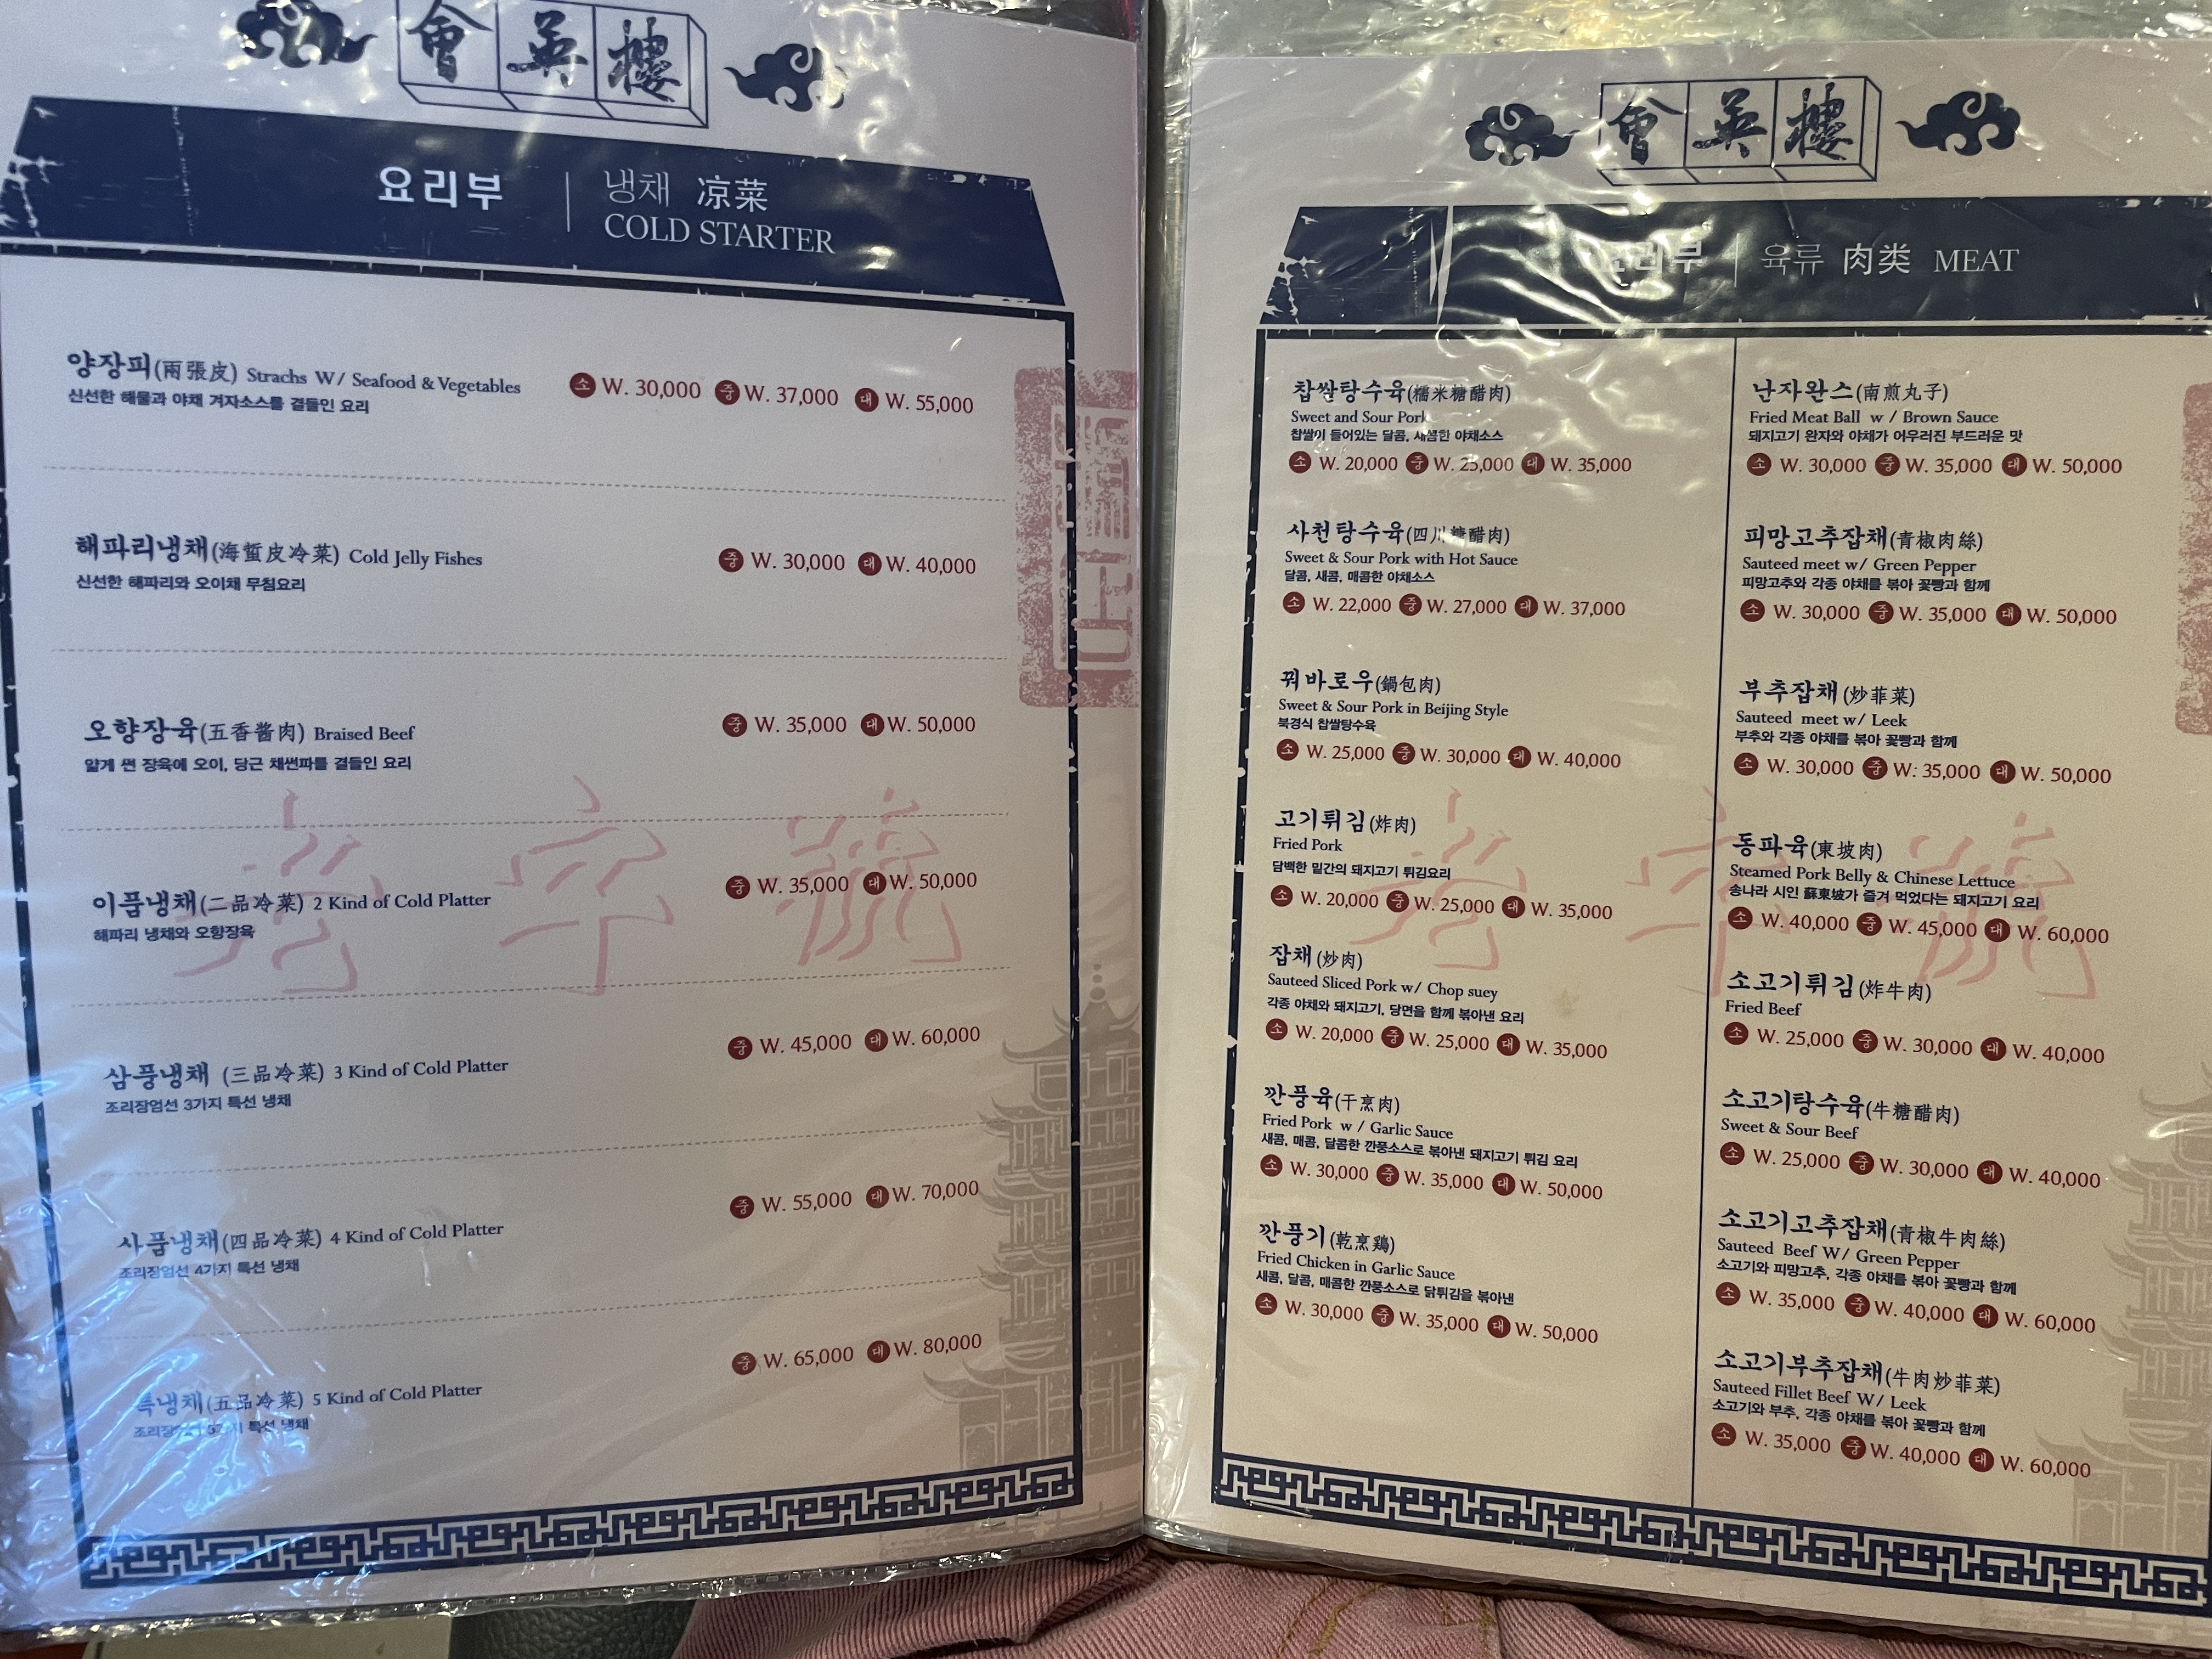 會英樓
요리부 냉채 凉菜
COLD STARTER
양장피(兩張皮) Strachs W/ Seafood & Vegetables 소 W. 30,000 중 W. 37,000 대 W. 55,000
신선한 해물과 야채 겨자소스를 곁들인 요리
해파리냉채(海蜇皮冷菜) Cold Jelly Fishes 중 W. 30,000 대 W. 40,000
신선한 해파리와 오이채 무침요리
오향장육(五香醬肉) Braised Beef 중 W. 35,000 대 W. 50,000
얇게 썬 장육에 오이, 당근 채썬파를 곁들인 요리
이품냉채(二品冷菜) 2 Kind of Cold Platter 중 W. 35,000 대 W. 50,000
해파리 냉채와 오향장육
삼품냉채 (三品冷菜) 3 Kind of Cold Platter 중 W. 45,000 대 W. 60,000
조리장엄선 3가지 특선 냉채
사품냉채(四品冷菜) 4 Kind of Cold Platter 중 W. 55,000 대 W. 70,000
조리장엄선 4가지 특선 냉채
특냉채(五品冷菜) 5 Kind of Cold Platter 중 W. 65,000 대 W. 80,000
특선 냉채
會英樓
요리부 육류 肉类 MEAT
찹쌀탕수육(糯米糖醋肉)
Sweet and Sour Pork
찹쌀이 들어있는 달콤, 새콤한 야채소스
소 W. 20,000 중 W. 25,000 대 W. 35,000
사천탕수육(四川糖醋肉)
Sweet & Sour Pork with Hot Sauce
달콤, 새콤, 매콤한 야채소스
소 W. 22,000 중 W. 27,000 대 W. 37,000
꿔바로우(鍋包肉)
Sweet & Sour Pork in Beijing Style
북경식 찹쌀탕수육
소 W. 25,000 중 W. 30,000 대 W. 40,000
고기튀김(炸肉)
Fried Pork
담백한 밑간의 돼지고기 튀김요리
소 W. 20,000 중 W. 25,000 대 W. 35,000
잡채(炒肉)
Sauteed Sliced Pork w/ Chop suey
각종 야채와 돼지고기, 당면을 함께 볶아낸 요리
소 W. 20,000 중 W. 25,000 대 W. 35,000
깐풍육(干烹肉)
Fried Pork w / Garlic Sauce
새콤, 매콤, 달콤한 깐풍소스로 볶아낸 돼지고기 튀김 요리
소 W. 30,000 중 W. 35,000 대 W. 50,000
깐풍기(乾烹鷄)
Fried Chicken in Garlic Sauce
새콤, 달콤, 매콤한 깐풍소스로 닭튀김을 볶아낸
소 W. 30,000 중 W. 35,000 대 W. 50,000
난자완스(南煎丸子)
Fried Meat Ball w / Brown Sauce
돼지고기 완자와 야채가 어우러진 부드러운 맛
소 W. 30,000 중 W. 35,000 대 W. 50,000
피망고추잡채(青椒肉絲)
Sauteed meet w/ Green Pepper
피망고추와 각종 야채를 볶아 꽃빵과 함께
소 W. 30,000 중 W. 35,000 대 W. 50,000
부추잡채(炒韮菜)
Sauteed meet w/ Leek
부추와 각종 야채를 볶아 꽃빵과 함께
소 W. 30,000 중 W: 35,000 대 W. 50,000
동파육(東坡肉)
Steamed Pork Belly & Chinese Lettuce
송나라 시인 蘇東坡가 즐겨 먹었다는 돼지고기 요리
소 W. 40,000 중 W. 45,000 대 W. 60,000
소고기튀김(炸牛肉)
Fried Beef
소 W. 25,000 중 W. 30,000 대 W. 40,000
소고기탕수육(牛糖醋肉)
Sweet & Sour Beef
소 W. 25,000 중 W. 30,000 대 W. 40,000
소고기고추잡채(青椒牛肉絲)
Sauteed Beef W/ Green Pepper
소고기와 피망고추, 각종 야채를 볶아 꽃빵과 함께
소 W. 35,000 중 W. 40,000 대 W. 60,000
소고기부추잡채(牛肉炒韮菜)
Sauteed Fillet Beef W/ Leek
소고기와 부추, 각종 야채를 볶아 꽃빵과 함께
소 W. 35,000 중 W. 40,000 대 W. 60,000